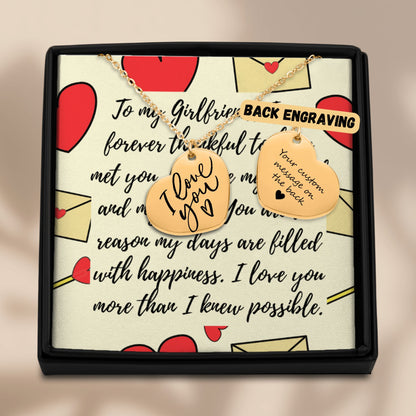 To my Girlfriend
BACK ENGRAVING
forever thankful to
met you
and
reason my days are filled
with happiness. I love you
more than I knew possible.
I love
you
Your custom
message on
the back